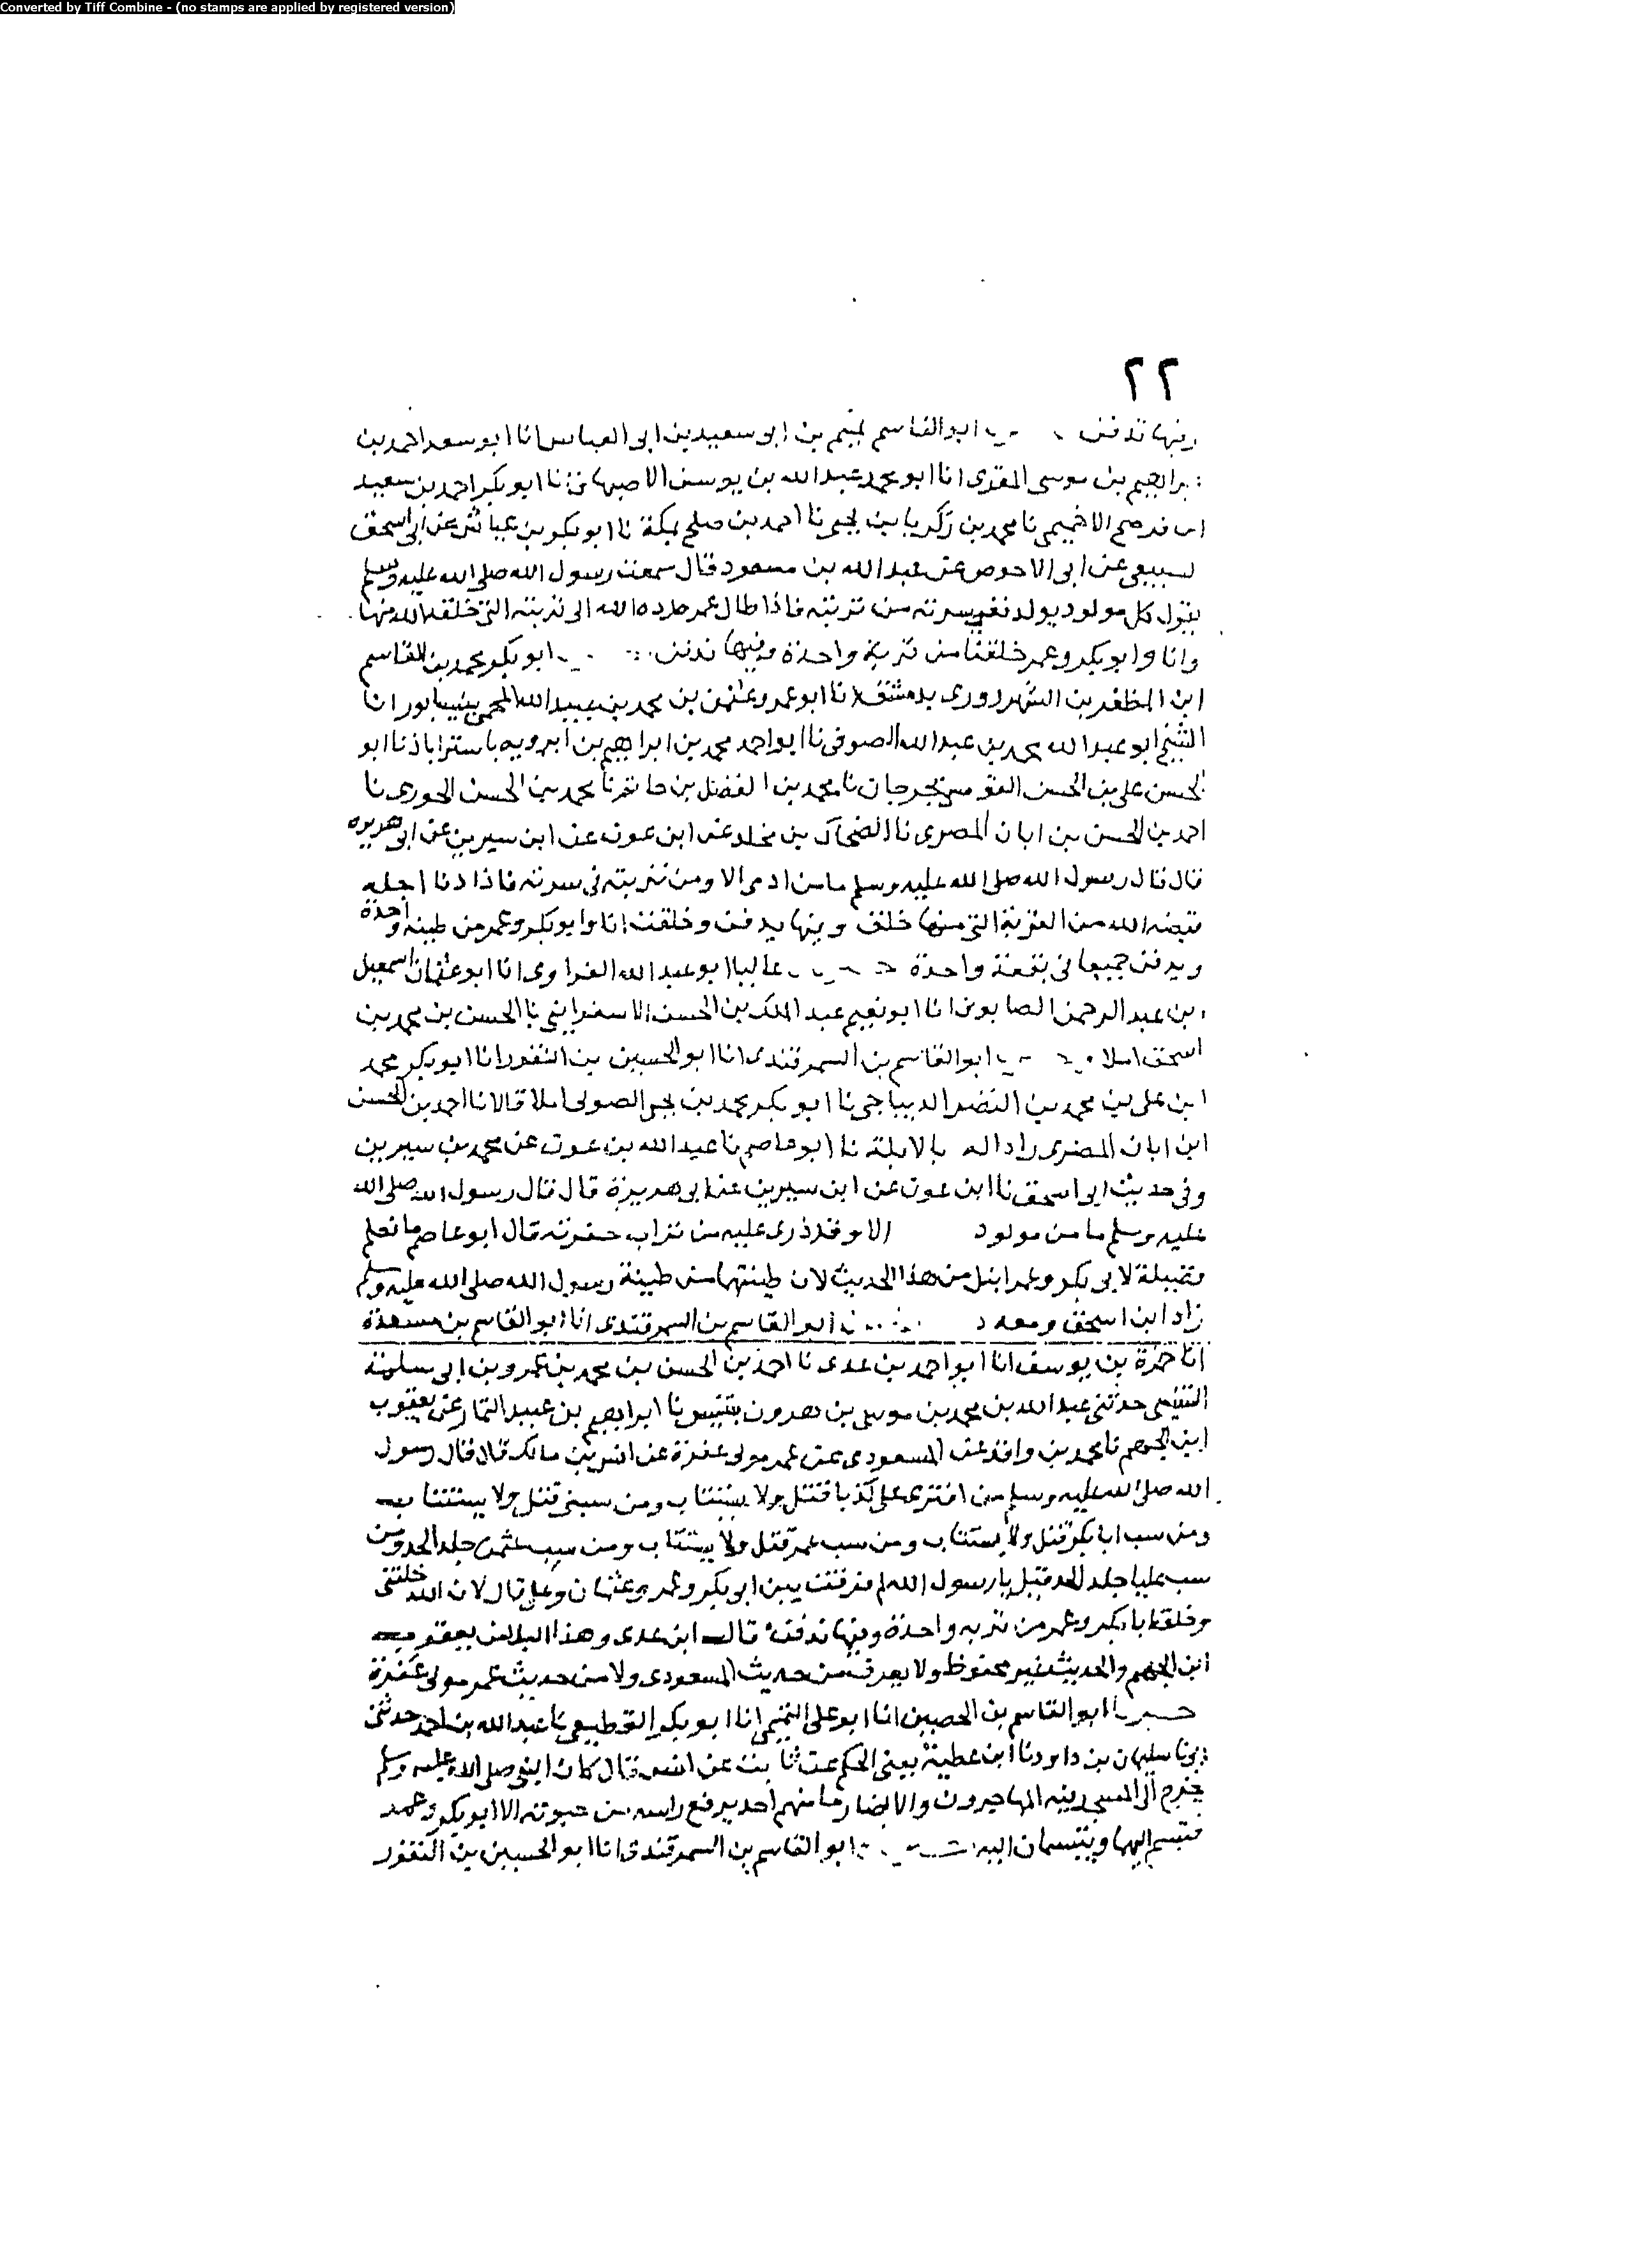 Converted by Tiff Combine - (no stamps are applied by registered version)
٢٢
وفيها ندفن ابو القاسم تميم بن ابى سعيد بن ابى العباس انا ابو سعد احمد بن
ابراهيم بن موسى المقرى انا ابو محمد عبد الله بن يوسف الاصبهانى نا ابو بكر احمد بن سعيد
الاخميمى نا محمد بن زكريا بن يحيى نا احمد بن صلح بمكة نا ابو بكر بن عياش عن ابى اسحق
لسبيعى عن ابى الاحوص عن عبد الله بن مسعود قال سمعت رسول الله صلى الله عليه وسلم
يقول كل مولود يولد ففى سرته من تربته فاذا طال عمره رده الله الى تربته التى خلقه الله منها
وانا وابو بكر وعمر خلقنا من تربة واحدة وفيها ندفن ابو بكر محمد بن القاسم
ابن المظفر بن الشهرزورى بدمشق انا ابو عمرو عثمن بن محمد بن عبيد الله المحمى بنيسابور انا
الشيخ ابو عبد الله محمد بن عبد الله الصوفى نا ابو احمد محمد بن ابراهيم بن ابرويه باستراباذ نا ابو
الحسن على بن الحسن القومسى بجرجان نا محمد بن الفضل بن حاتم نا محمد بن الحسن الجورى نا
احمد بن الحسن بن ابان المصرى نا الضحاك بن مخلد عن ابن عون عن ابن سيرين عن ابى هريره
قال قال رسول الله صلى الله عليه وسلم ما من ادمى الا ومن تربته فى سرته فاذا دنا اجله
قبضه الله من التربة التى منها خلق وفيها يدفن وخلقت انا وابو بكر وعمر من طينه واحدة
ويدفن جميعا فى بقعة واحدة عاليا ابو عبد الله الفراوى انا ابو عثمان اسمعيل
ابن عبد الرحمن الصابونى انا ابو نعيم عبد الملك بن الحسن الاسفراينى نا الحسن بن محمد بن
اسحق املا ابو القاسم بن السمرقندى انا ابو الحسين بن النقور انا ابو بكر محمد
ابن على بن محمد بن النضر الديباجى نا ابو بكر محمد بن يحيى الصولى املا قالا نا احمد بن الحسن
ابن ابان المضرى بالابلة نا ابو عاصم نا عبد الله بن عون عن محمد بن سيرين
وفى حديث ابى اسحق نا ابن عون عن ابن سيرين عن ابى هريرة قال قال رسول الله صلى الله
عليه وسلم ما من مولود الا وقد ذرى عليه من تراب حفرته قال ابو عاصم ما نعلم
فضيلة لابى بكر وعمر انبل من هذا الحديث لان طينتهما من طينة رسول الله صلى الله عليه وسلم
زاد ابن اسحق ومعه د ابو القاسم بن السمرقندى انا ابو القاسم بن مسعدة
انا حمزة بن يوسف انا ابو احمد بن عدى نا احمد بن الحسن بن محمد بن عمرو بن ابى سلمة
التنيسى حدثنى عبد الله بن محمد بن موسى بن هرون بتنيس نا ابراهيم بن عبيد التمار عن يعقوب
ابن الجهم نا محمد بن واقد عن المسعودى عن عمر مولى غفرة عن انس بن مالك قال قال رسول
الله صلى الله عليه وسلم من افترى على كذبا قتل ولا يستتاب ومن سبنى قتل ولا يستتاب
ومن سب ابا بكر قتل ولا يستتاب ومن سب عمر قتل ولا يستتاب ومن سب عثمن جلد الحد ومن
سب عليا جلد الحد قيل يا رسول الله لم فرقت بين ابى بكر وعمر وعثمان وعلى قال لان الله خلقنى
وخلق ابا بكر وعمر من تربه واحدة وفيها ندفن قال ابن عدى وهذا البلا من يعقوب
ابن الجهم والحديث غير محفوظ ولا يعرف من حديث المسعودى ولا من حديث عمر مولى غفرة
ابو القاسم بن الحصين انا ابو على التميمى انا ابو بكر القطيعى نا عبد الله بن احمد حدثنى
ابى نا سليمان بن داود نا ابن عطية يعنى الحكم عن ثابت عن انس قال كان النبى صلى الله عليه وسلم
يخرج الى المسجد فيه المهاجرون والانصار ما منهم احد يرفع راسه من حبوته الا ابو بكر وعمر
فتبسم اليهما ويتبسمان اليه ابو القاسم بن السمرقندى انا ابو الحسين بن النقور